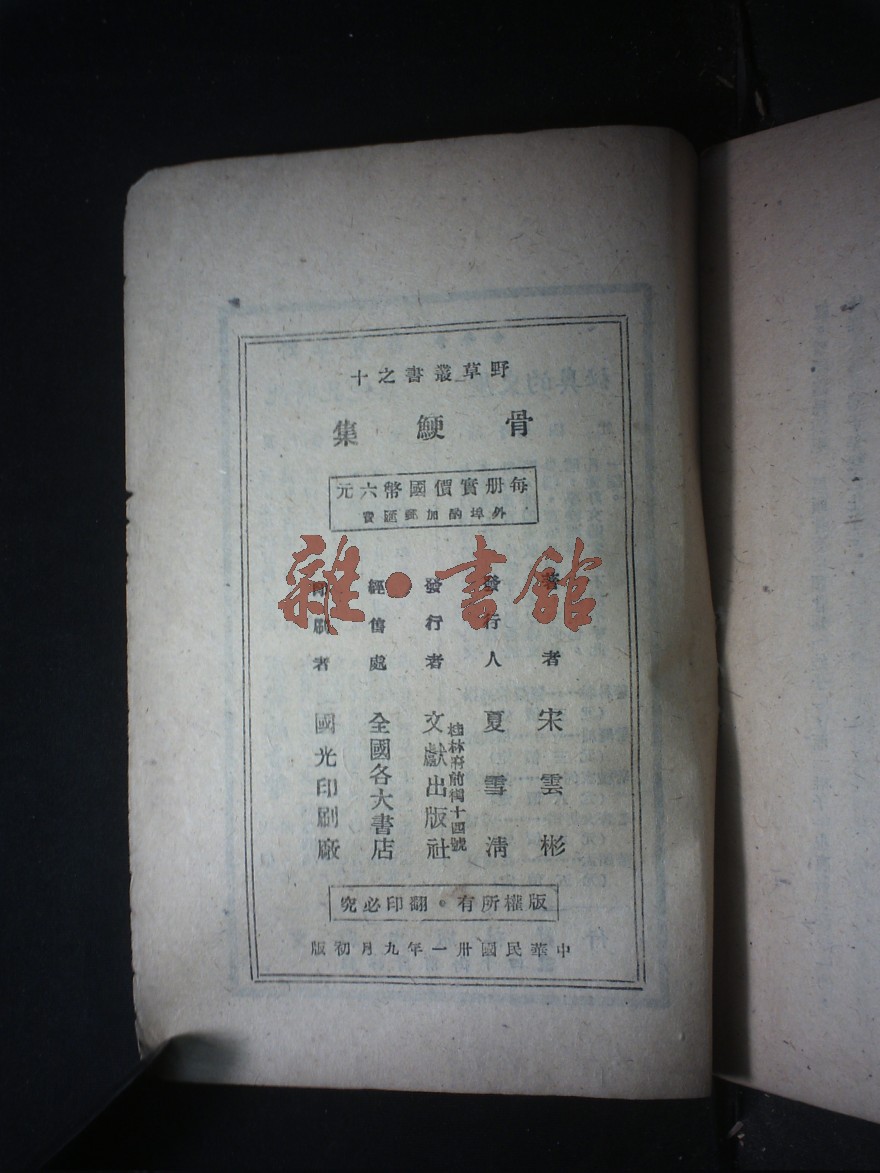 野草叢書之十
骨鯁集
每册實價國幣六元
外埠酌加郵匯費
著者 宋雲彬
發行人 夏雪清
發行者 文獻出版社
桂林府前街十四號
經售處 全國各大書店
印刷者 國光印刷廠
版權所有・翻印必究
中華民國卅一年九月初版
雜・書館